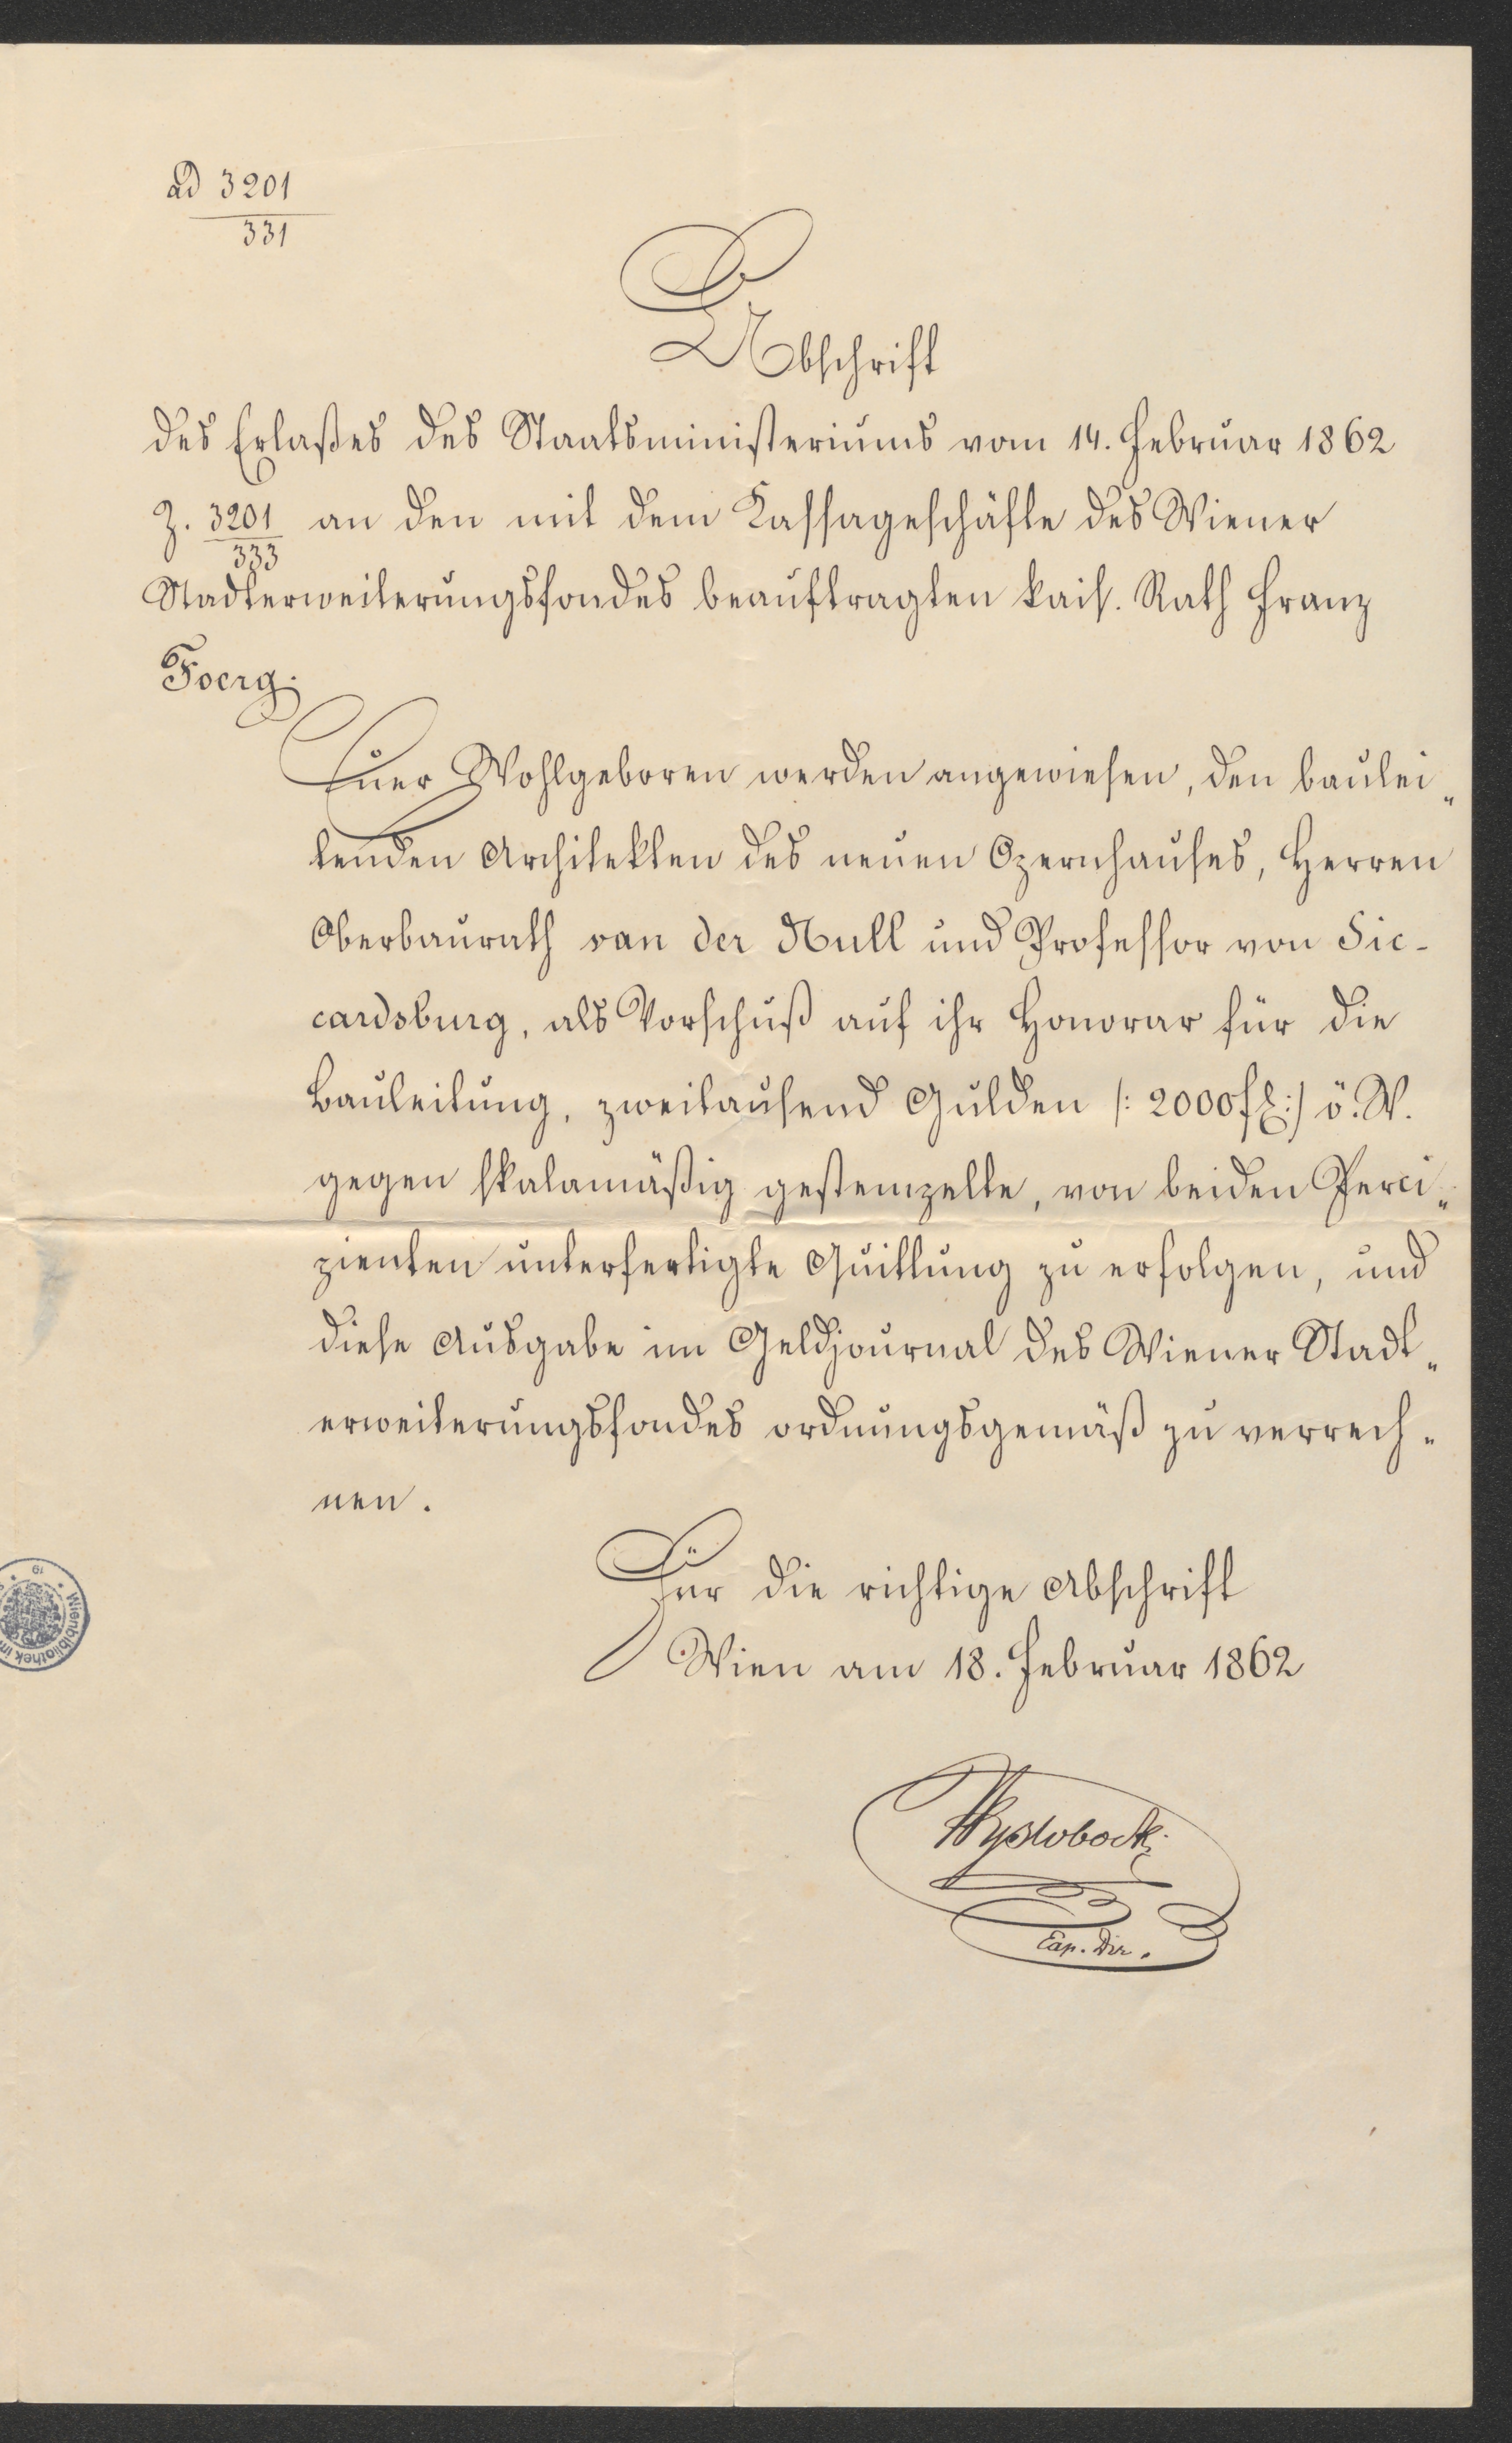 ad 3201
331
Abschrift
des Erlaßes des Staatsministeriums vom 14. Februar 1862
Z. 3201 an den mit dem Kassageschäfte des Wiener
333
Stadterweiterungsfondes beauftragten kais. Rath Franz
Foerg.
Euer Wohlgeboren werden angewiesen, den baulei„
tenden Architekten des neuen Opernhauses, Herren
Oberbaurath van der Null und Professor von Sic-
cardsburg, als Vorschuß auf ihr Honorar für die
Bauleitung, zweitausend Gulden /: 2000 fl :/ ö. W.
gegen skalamäßig gestempelte, von beiden Perci„
pienten unterfertigte Quittung zu erfolgen, und
diese Ausgabe im Geldjournal des Wiener Stadt„
erweiterungsfondes ordnungsgemäß zu verrech„
nen.
Für die richtige Abschrift
Wien am 18. Februar 1862
Exp. Dir.
Wienbibliothek im